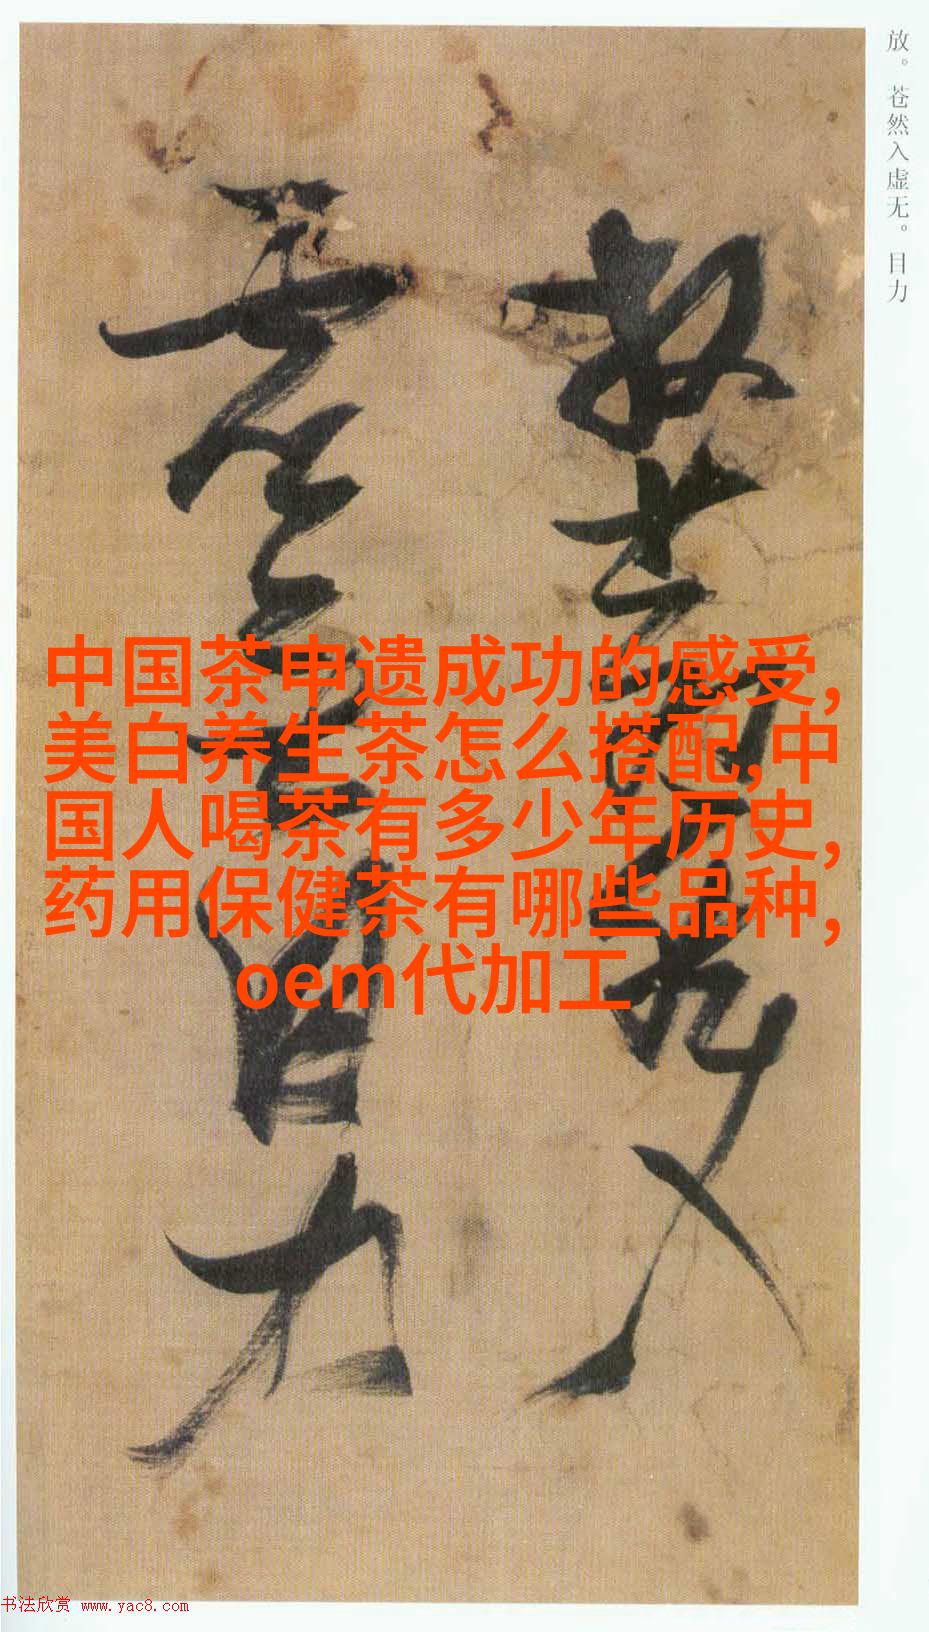 放。苍然入虚无。目力
放苍然入
虚无目力
中国茶申遗成功的感受,
美白养生茶怎么搭配,中
国人喝茶有多少年历史,
药用保健茶有哪些品种,
oem代加工
书法欣赏 www.yac8.com